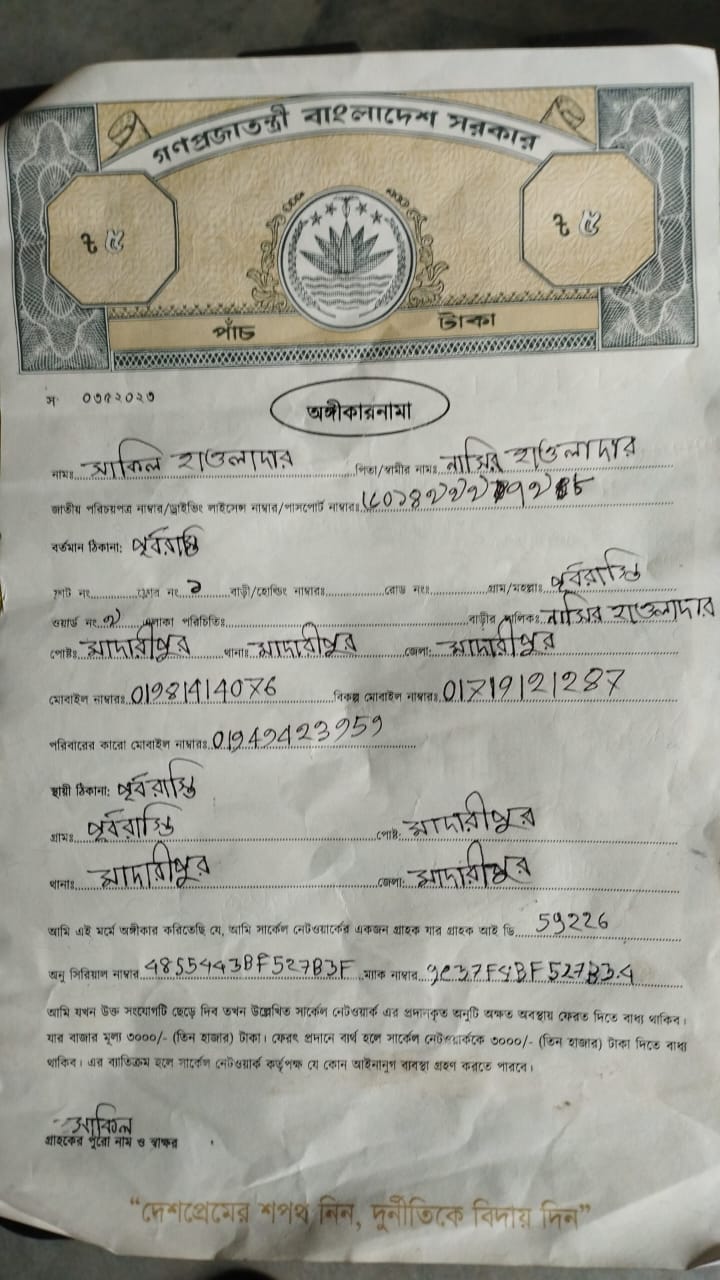 গণপ্রজাতন্ত্রী বাংলাদেশ সরকার
৳ ৫ ৳ ৫
পাঁচ টাকা
অঙ্গীকারনামা
নামঃ সাকিল হাওলাদার পিতা/স্বামীর নামঃ নাসির হাওলাদার
জাতীয় পরিচয়পত্র নাম্বার/ড্রাইভিং লাইসেন্স নাম্বার/পাসপোর্ট নাম্বারঃ
বর্তমান ঠিকানা: পূর্বরাস্তি
ফ্লাট নং ফ্লোর নং ১ বাড়ী/হোল্ডিং নাম্বারঃ রোড নংঃ গ্রাম/মহল্লাঃ পূর্বরাস্তি
ওয়ার্ড নং ২ এলাকা পরিচিতিঃ বাড়ীর মালিকঃ নাসির হাওলাদার
পোষ্টঃ মাদারীপুর থানাঃ মাদারীপুর জেলা: মাদারীপুর
মোবাইল নাম্বারঃ 01981414076 বিকল্প মোবাইল নাম্বারঃ 01719121287
পরিবারের কারো মোবাইল নাম্বারঃ 01949423959
স্থায়ী ঠিকানা: পূর্বরাস্তি
গ্রামঃ পূর্বরাস্তি পোষ্ট: মাদারীপুর
থানাঃ মাদারীপুর জেলা: মাদারীপুর
আমি এই মর্মে অঙ্গীকার করিতেছি যে, আমি সার্কেল নেটওয়ার্কের একজন গ্রাহক যার গ্রাহক আই ডি 59226
অনু সিরিয়াল নাম্বার 4855443BF527B3F ম্যাক নাম্বার
আমি যখন উক্ত সংযোগটি ছেড়ে দিব তখন উল্লেখিত সার্কেল নেটওয়ার্ক এর প্রদানকৃত অনুটি অক্ষত অবস্থায় ফেরত দিতে বাধ্য থাকিব।
যার বাজার মূল্য ৩০০০/- (তিন হাজার) টাকা। ফেরৎ প্রদানে ব্যর্থ হলে সার্কেল নেটওয়ার্ককে ৩০০০/- (তিন হাজার) টাকা দিতে বাধ্য
থাকিব। এর ব্যতিক্রম হলে সার্কেল নেটওয়ার্ক কর্তৃপক্ষ যে কোন আইনানুগ ব্যবস্থা গ্রহণ করতে পারবে।
সাকিল
গ্রাহকের পুরো নাম ও স্বাক্ষর
“দেশপ্রেমের শপথ নিন, দুর্নীতিকে বিদায় দিন”